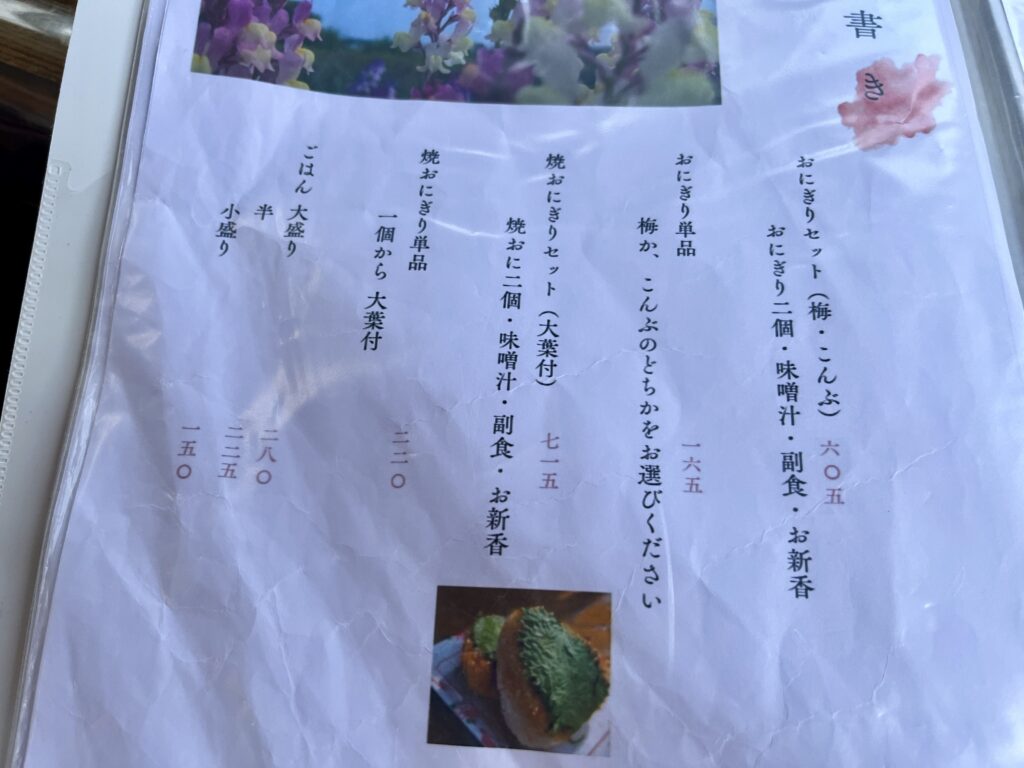 書き
おにぎりセット（梅・こんぶ） 六〇五
おにぎり二個・味噌汁・副食・お新香
おにぎり単品 一六五
梅か、こんぶのどちかをお選びください
焼おにぎりセット（大葉付） 七一五
焼おに二個・味噌汁・副食・お新香
焼おにぎり単品
一個から 大葉付 二二〇
ごはん 大盛り 二八〇
半 二二五
小盛り 一五〇